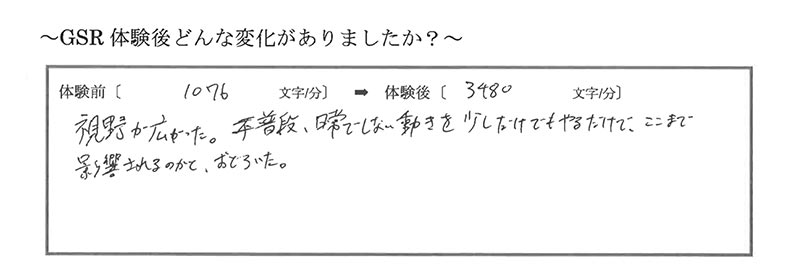 ～GSR 体験後どんな変化がありましたか？～
体験前〔 1076 文字/分〕 ➡ 体験後〔 3480 文字/分〕
視野が広がった。 普段、日常でしない動きを少しだけでもやるだけで、ここまで
影響されるのかと、おどろいた。